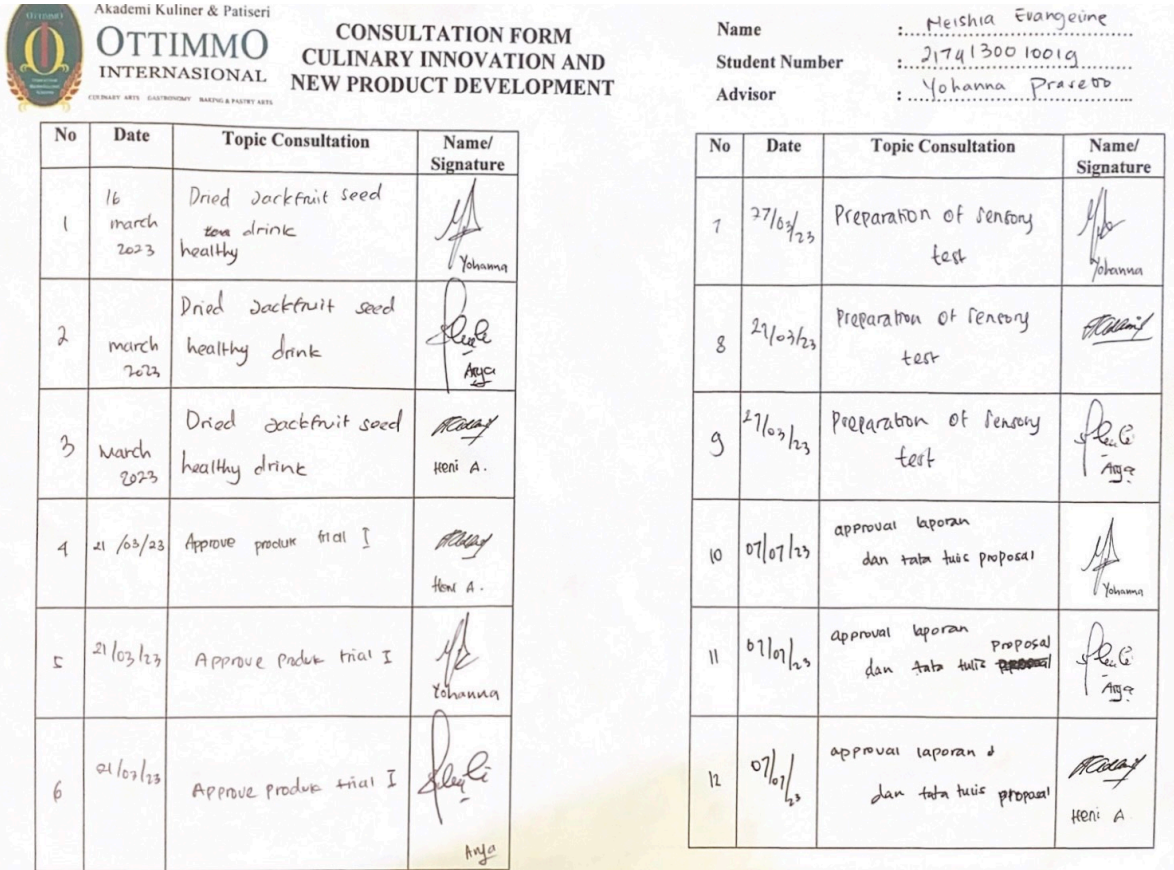 Akademi Kuliner & Patiseri
OTTIMMO
INTERNASIONAL
CULINARY ARTS GASTRONOMY BAKING & PASTRY ARTS
CONSULTATION FORM
CULINARY INNOVATION AND
NEW PRODUCT DEVELOPMENT
Name : Meishia Evangeline
Student Number : 2174130010019
Advisor : Yohanna Prasetio
No Date Topic Consultation Name/
Signature
1 16 march 2023 Dried Jackfruit seed
drink
healthy
Yohanna
2 march 2023 Dried Jackfruit seed
healthy drink
Arya
3 March 2023 Dried Jackfruit seed
healthy drink
Heni A.
4 21/03/23 Approve produk trial I
Heni A.
5 21/03/23 Approve produk trial I
Yohanna
6 21/03/23 Approve produk trial I
Arya
No Date Topic Consultation Name/
Signature
7 27/03/23 Preparation of sensory
test
Yohanna
8 27/03/23 Preparation of sensory
test
9 27/03/23 Preparation of sensory
test
Arya
10 07/07/23 approval laporan
dan tata tulis proposal
Yohanna
11 07/07/23 approval laporan
dan tata tulis proposal
Arya
12 07/07/23 approval laporan
dan tata tulis proposal
Heni A.